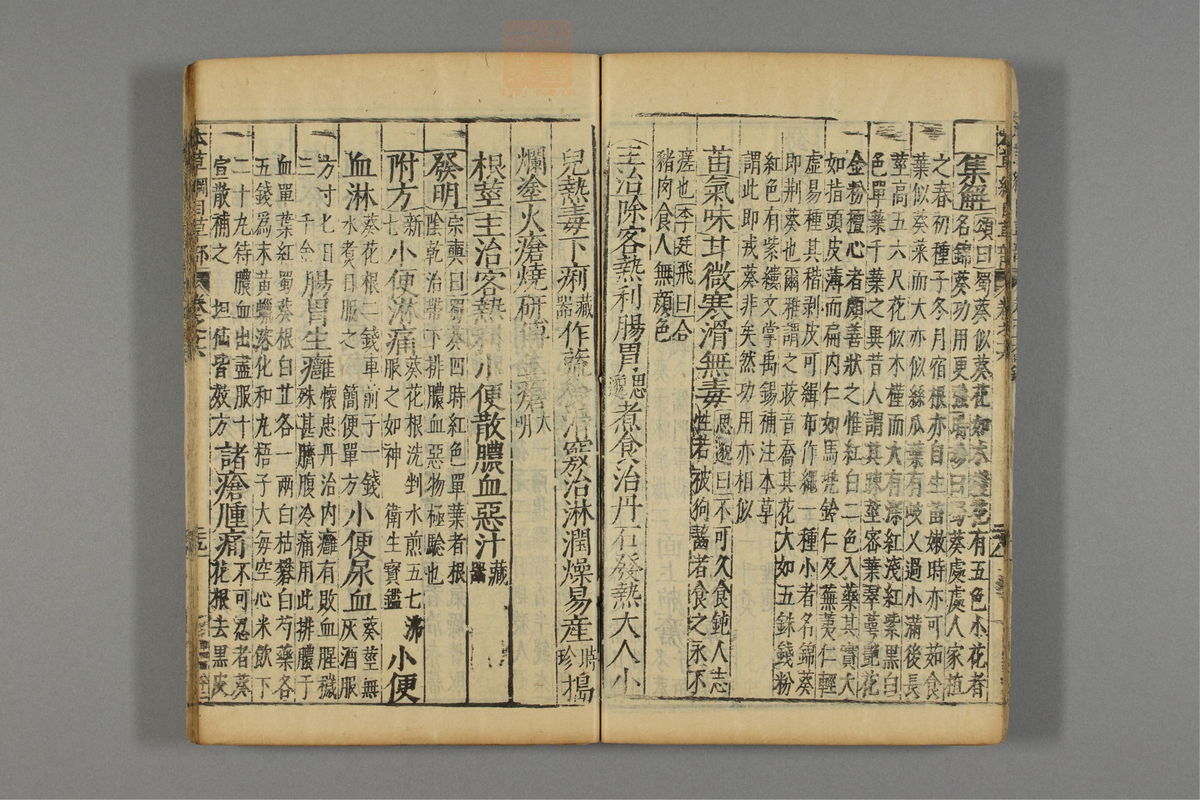 集解頌曰蜀葵似葵花如木槿花有五色小花者
名錦葵功用更強時珍曰蜀葵處處人家植
之春初種子冬月宿根亦自生苗嫩時亦可茹食
葉似葵菜而大亦似絲瓜葉有岐叉過小滿後長
莖高五六尺花似木槿而大有深紅淺紅紫黑白
色單葉千葉之異昔人謂其疎莖密葉翠萼艷花
金粉檀心者頗善狀之惟紅白二色入藥其實大
如指頭皮薄而扁內仁如馬兜鈴仁及蕪荑仁輕
虛易種其稭剥皮可緝布作繩一種小者名錦葵
即荆葵也爾雅謂之荍音喬其花大如五銖錢粉
紅色有紫縷文掌禹錫補注本草
謂此即戎葵非矣然功用亦相似
苗氣味甘微寒滑無毒思邈曰不可久食鈍人志
性若被狗齧者食之永不
瘥也李廷飛曰合
豬肉食人無顏色
主治除客熱利腸胃思邈煮食治丹石發熱大人小
兒熱毒下痢藏器作蔬食滑竅治淋潤燥易産時珍搗
爛塗火瘡燒研傅金瘡大明
根莖主治客熱利小便散膿血惡汁藏器
發明宗奭曰蜀葵四時紅色單葉者根
陰乾治帶下排膿血惡物極驗也
附方新七小便淋痛葵花根洗剉水煎五七沸
服之如神 衛生寶鑑 小便
血淋葵花根二錢車前子一錢
水煮日服之 簡便單方小便尿血葵莖無
灰酒服
方寸匕日
三 千金腸胃生癰懷忠丹治內癰有敗血腥穢
殊甚臍腹冷痛用此排膿
血單葉紅蜀葵根白芷各一兩白枯礬白芍藥各
五錢爲末黃蠟溶化和丸梧子大毎空心米飲下
二十丸待膿血出盡服十
宣散補之 坦仙皆效方諸瘡腫痛不可忍者葵
花根去黑皮
本草綱目草部 卷之十六